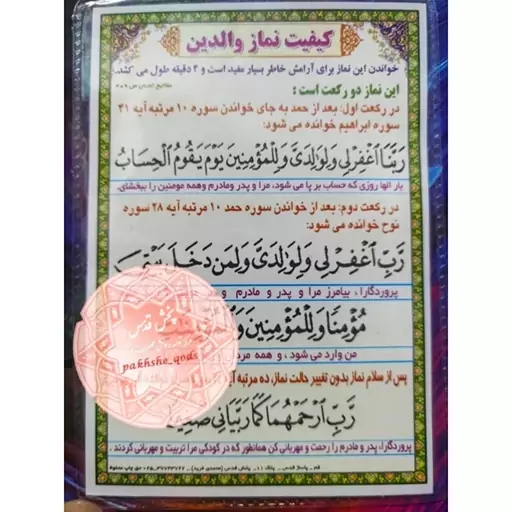 کیفیت نماز والدین
خواندن این نماز برای آرامش خاطر بسیار مفید است و ۴ دقیقه طول می کشد.
این نماز دو رکعت است :
در رکعت اول: بعد از حمد به جای خواندن سوره ۱۰ مرتبه آیه ۴۱
سوره ابراهیم خوانده می شود:
رَبَّنَا اَغْفِرْلی وَلِوٰالِدَیَّ وَلِلْمُؤْمِنینَ یَوْمَ یَقُومُ الْحِسٰابُ
بار الها روزی که حساب بر پا می شود، مرا و پدر ومادرم وهمه مومنین را ببخشای.
در رکعت دوم: بعد از خواندن سوره حمد ۱۰ مرتبه آیه ۲۸ سوره
نوح خوانده می شود:
رَبِّ اَغْفِرْلی وَلِوٰالِدَیَّ وَلِمَن دَخَلَ بَیْتِیَ
پروردگارا، بیامرز مرا و پدر و مادرم و
مُؤْمِنًا وَلِلْمُؤْمِنینَ وَ
من وارد می شود، و همه
پس از سلام نماز بدون تغییر حالت نماز، ده مرتبه
رَبِّ ارْحَمْهُمٰا کَمٰا رَبَّیٰانی صَغیرًا
پروردگارا، پدر و مادرم را رحمت و مهربانی کن همانطور که در کودکی مرا تربیت و مهربانی کردند .
پخش قدس
pakhshe_qods